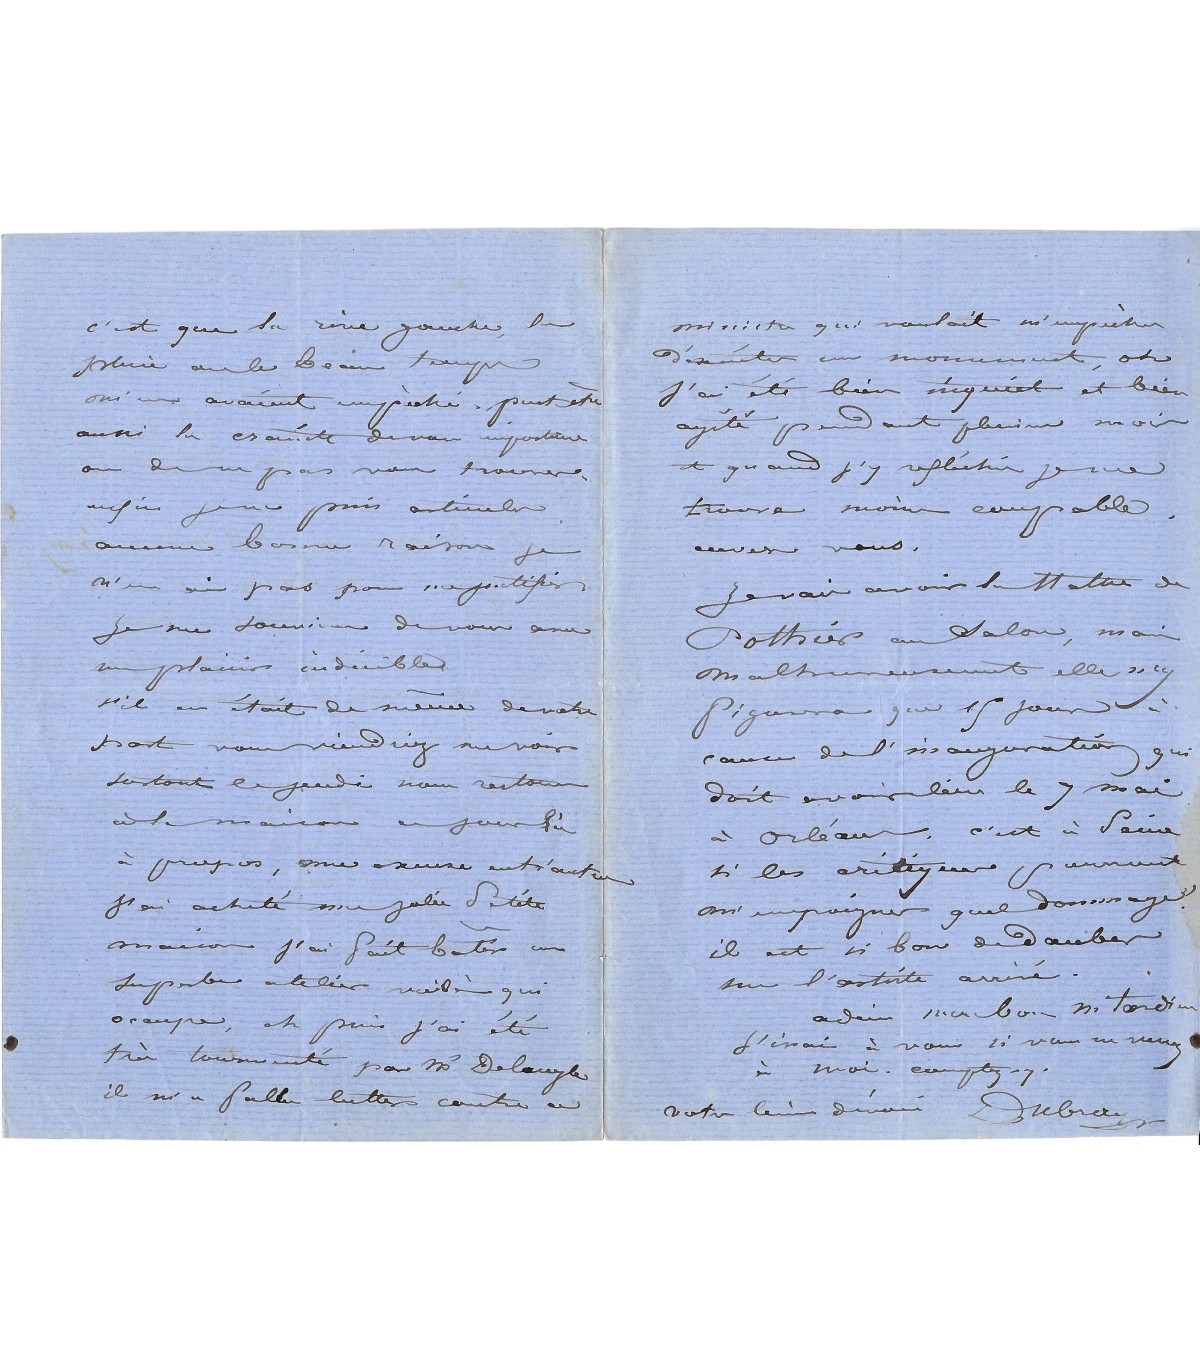 c'est que la rive gauche, la
pluie ou le beau temps
m'en avaient empêché. peut être
aussi la crainte de vous importuner
ou de ne pas vous trouver.
enfin je ne puis articuler
aucune bonne raison je
n'en ai pas pour me justifier
je me souviens de vous avec
un plaisir indicible
s'il en était de même de votre
part vous viendriez me voir
surtout le jeudi nous restons
à la maison ce jour là
à propos, une excuse entr'autre
j'ai acheté une jolie petite
maison j'ai fait bâtir un
superbe atelier voilà qui
ocupe, et puis j'ai été
très tourmenté par Mr Delangle
il m'a fallu lutter contre ce
ministre qui voulait m'empêcher
d'exécuter un monument, oh
j'ai été bien inquiet et bien
agité pendant plusieurs mois
et quand j'y réfléchis je me
trouve moins coupable
envers vous.
Je vais avoir la statue de
Pothier au Salon, mais
malheureusement elle n'y
figurera que 15 jours à
cause de l'inauguration qui
doit avoir lieu le 7 mai
à Orléans. c'est à peine
si les critiques pourront
m'empoigner quel dommage!
il est si bon de dauber
sur l'artiste arrivé.
adieu mon bon Mr Tardieu
j'irai à vous si vous ne venez
à moi. comptez-y.
votre bien dévoué Dubray